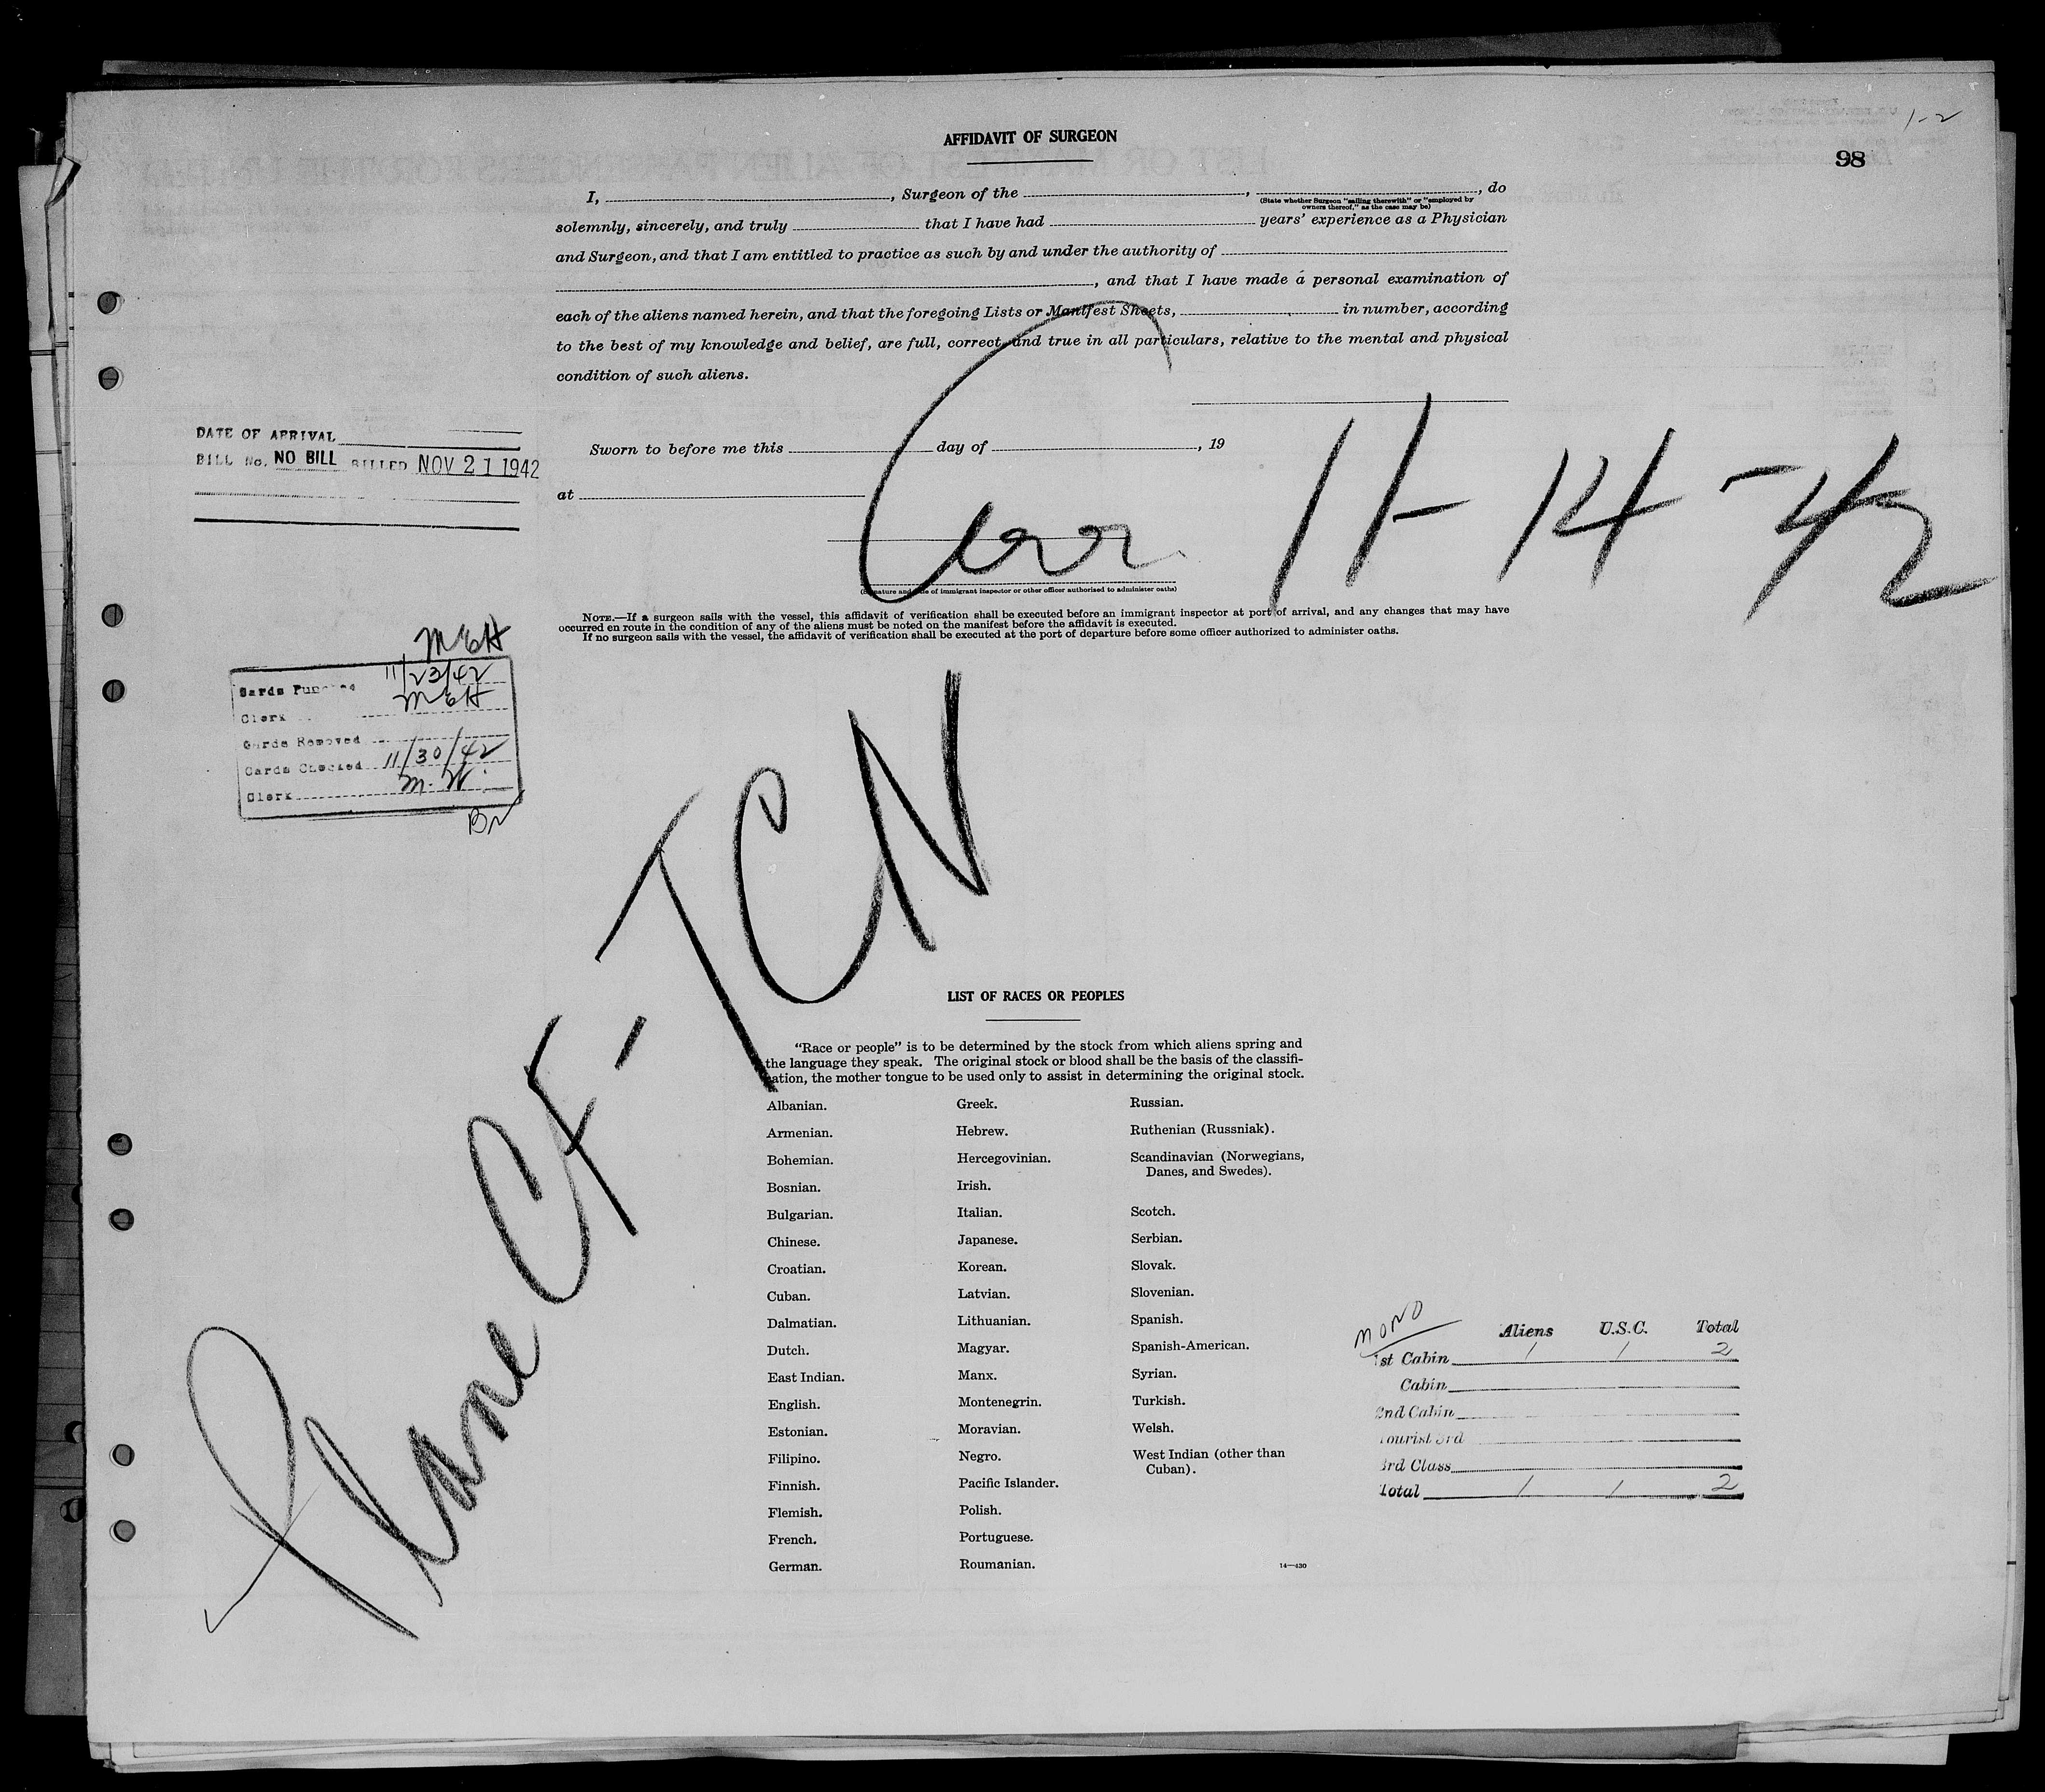 1-2
98
AFFIDAVIT OF SURGEON
I, , Surgeon of the , , do
(State whether Surgeon "sailing therewith" or "employed by
owners thereof," as the case may be)
solemnly, sincerely, and truly that I have had years' experience as a Physician
and Surgeon, and that I am entitled to practice as such by and under the authority of
, and that I have made a personal examination of
each of the aliens named herein, and that the foregoing Lists or Manifest Sheets, in number, according
to the best of my knowledge and belief, are full, correct and true in all particulars, relative to the mental and physical
condition of such aliens.
DATE OF ARRIVAL
BILL No. NO BILL BILLED NOV 21 1942
Sworn to before me this day of , 19
at
Arr 11-14-42
(Signature and title of immigrant inspector or other officer authorized to administer oaths)
NOTE.—If a surgeon sails with the vessel, this affidavit of verification shall be executed before an immigrant inspector at port of arrival, and any changes that may have
occurred en route in the condition of any of the aliens must be noted on the manifest before the affidavit is executed.
If no surgeon sails with the vessel, the affidavit of verification shall be executed at the port of departure before some officer authorized to administer oaths.
MEH
Cards Punched 11/23/42
Clerk MEH
Cards Removed
Cards Checked 11/30/42
Clerk M.W.
Plane CF-TCN
LIST OF RACES OR PEOPLES
"Race or people" is to be determined by the stock from which aliens spring and
the language they speak. The original stock or blood shall be the basis of the classifi-
cation, the mother tongue to be used only to assist in determining the original stock.
Albanian.
Armenian.
Bohemian.
Bosnian.
Bulgarian.
Chinese.
Croatian.
Cuban.
Dalmatian.
Dutch.
East Indian.
English.
Estonian.
Filipino.
Finnish.
Flemish.
French.
German.
Greek.
Hebrew.
Hercegovinian.
Irish.
Italian.
Japanese.
Korean.
Latvian.
Lithuanian.
Magyar.
Manx.
Montenegrin.
Moravian.
Negro.
Pacific Islander.
Polish.
Portuguese.
Roumanian.
Russian.
Ruthenian (Russniak).
Scandinavian (Norwegians,
Danes, and Swedes).
Scotch.
Serbian.
Slovak.
Slovenian.
Spanish.
Spanish-American.
Syrian.
Turkish.
Welsh.
West Indian (other than
Cuban).
14—430
MONO
Aliens U.S.C. Total
1st Cabin 1 1 2
Cabin
2nd Cabin
Tourist 3rd
3rd Class
Total 1 1 2